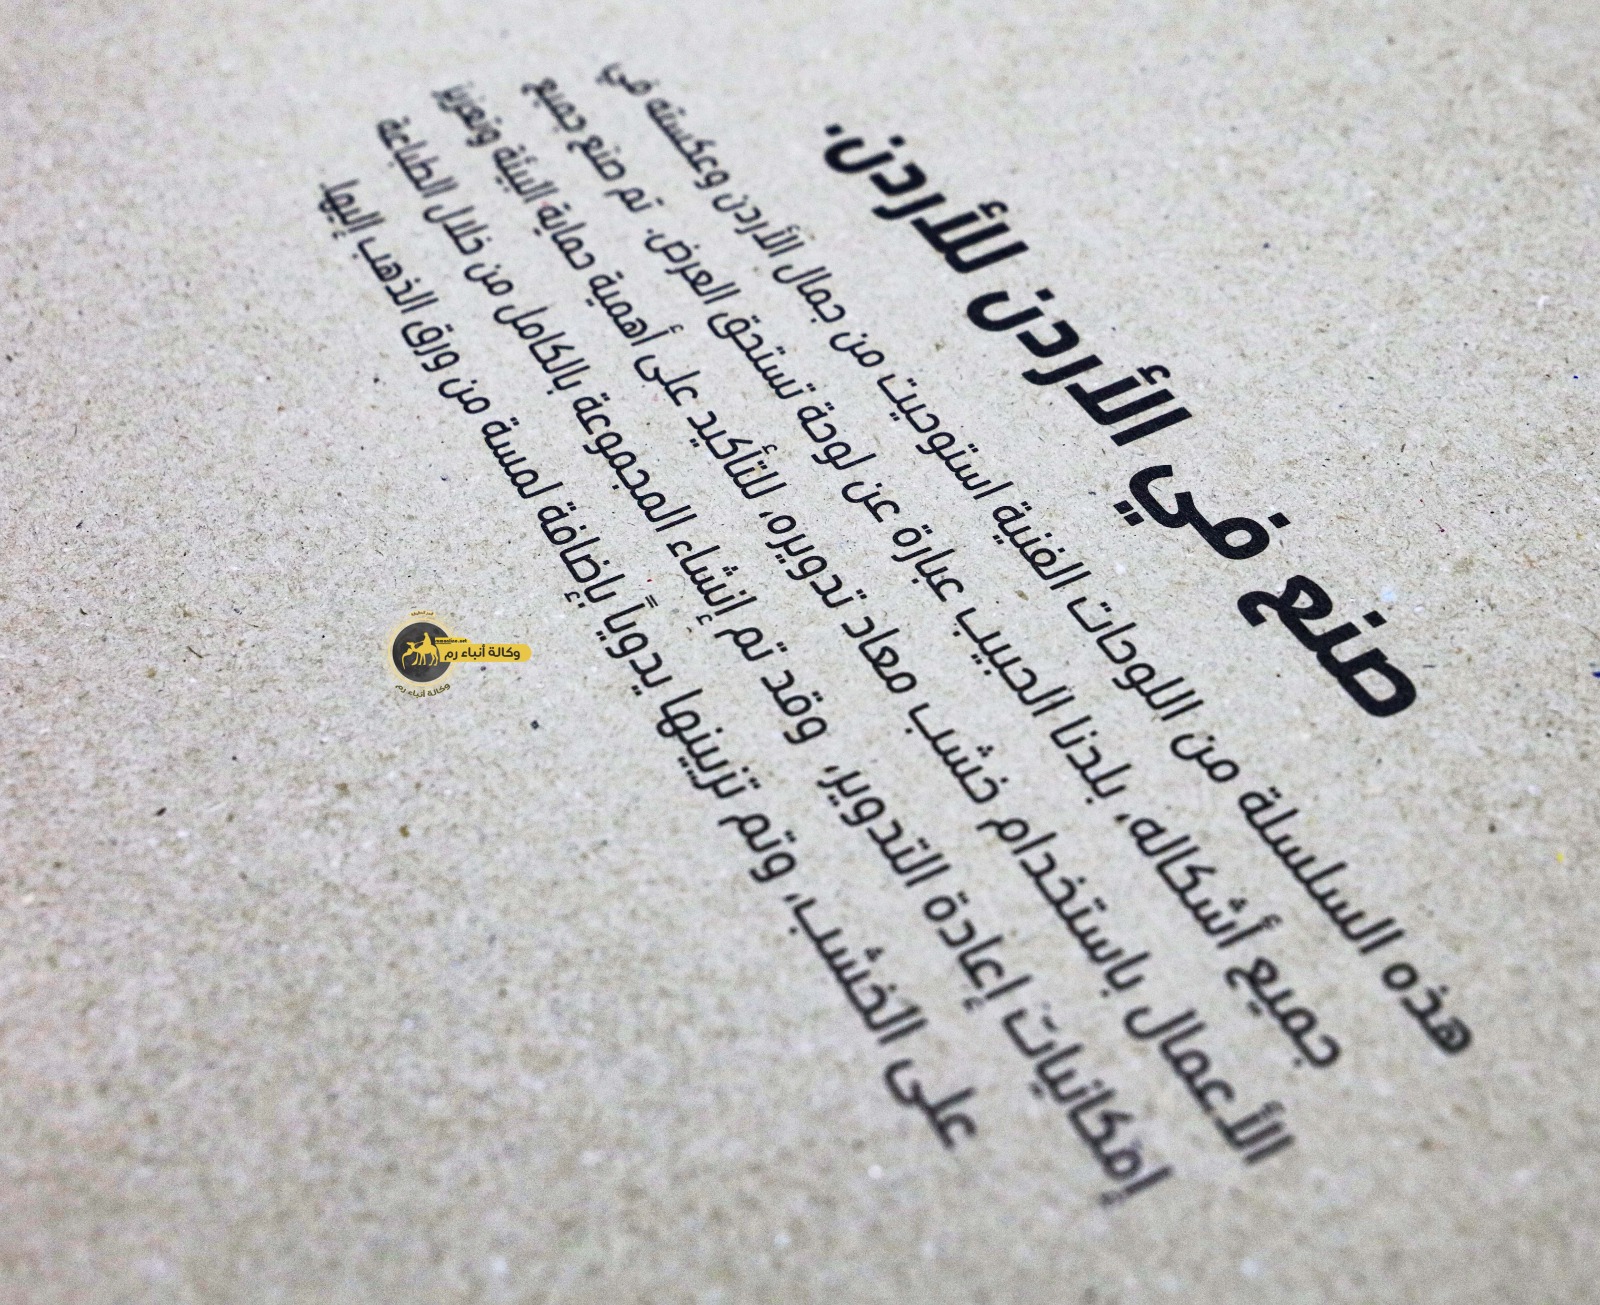 صنع في الأردن للأردن.
هذه السلسلة من اللوحات الفنية استوحيت من جمال الأردن وعكسته في
جميع أشكاله، بلدنا الحبيب عبارة عن لوحة تستحق العرض. تم صنع جميع
الأعمال باستخدام خشب معاد تدويره، للتأكيد على أهمية حماية البيئة وتعزيز
إمكانيات إعادة التدوير، وقد تم إنشاء المجموعة بالكامل من خلال الطباعة
على الخشب، وتم تزيينها يدوياً بإضافة لمسة من ورق الذهب إليها
وكالة أنباء رم
وكالة أنباء رم